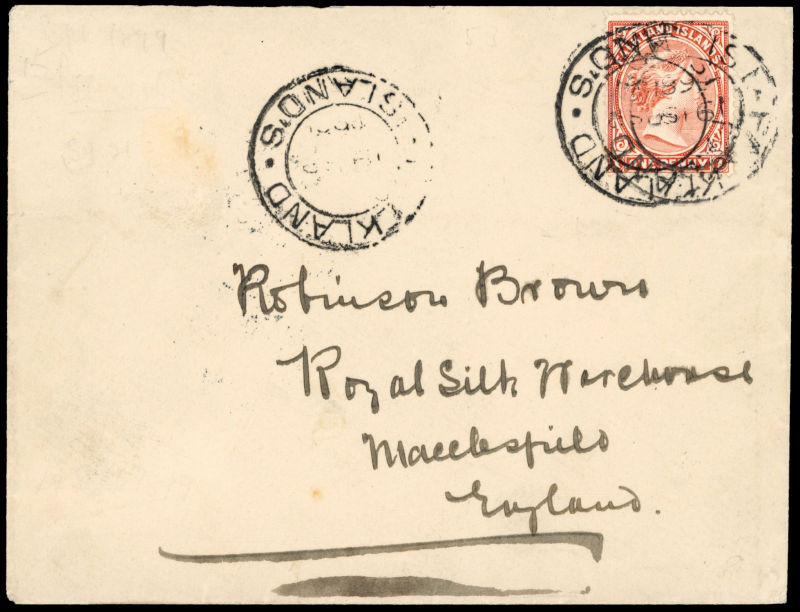 FALKLAND ISLANDS
ONE PENNY
FALKLAND · ISLAND'S ·
FALKLAND · ISLAND'S ·
Robinson Brown
Royal Silk Warehouse
Macclesfield
England.